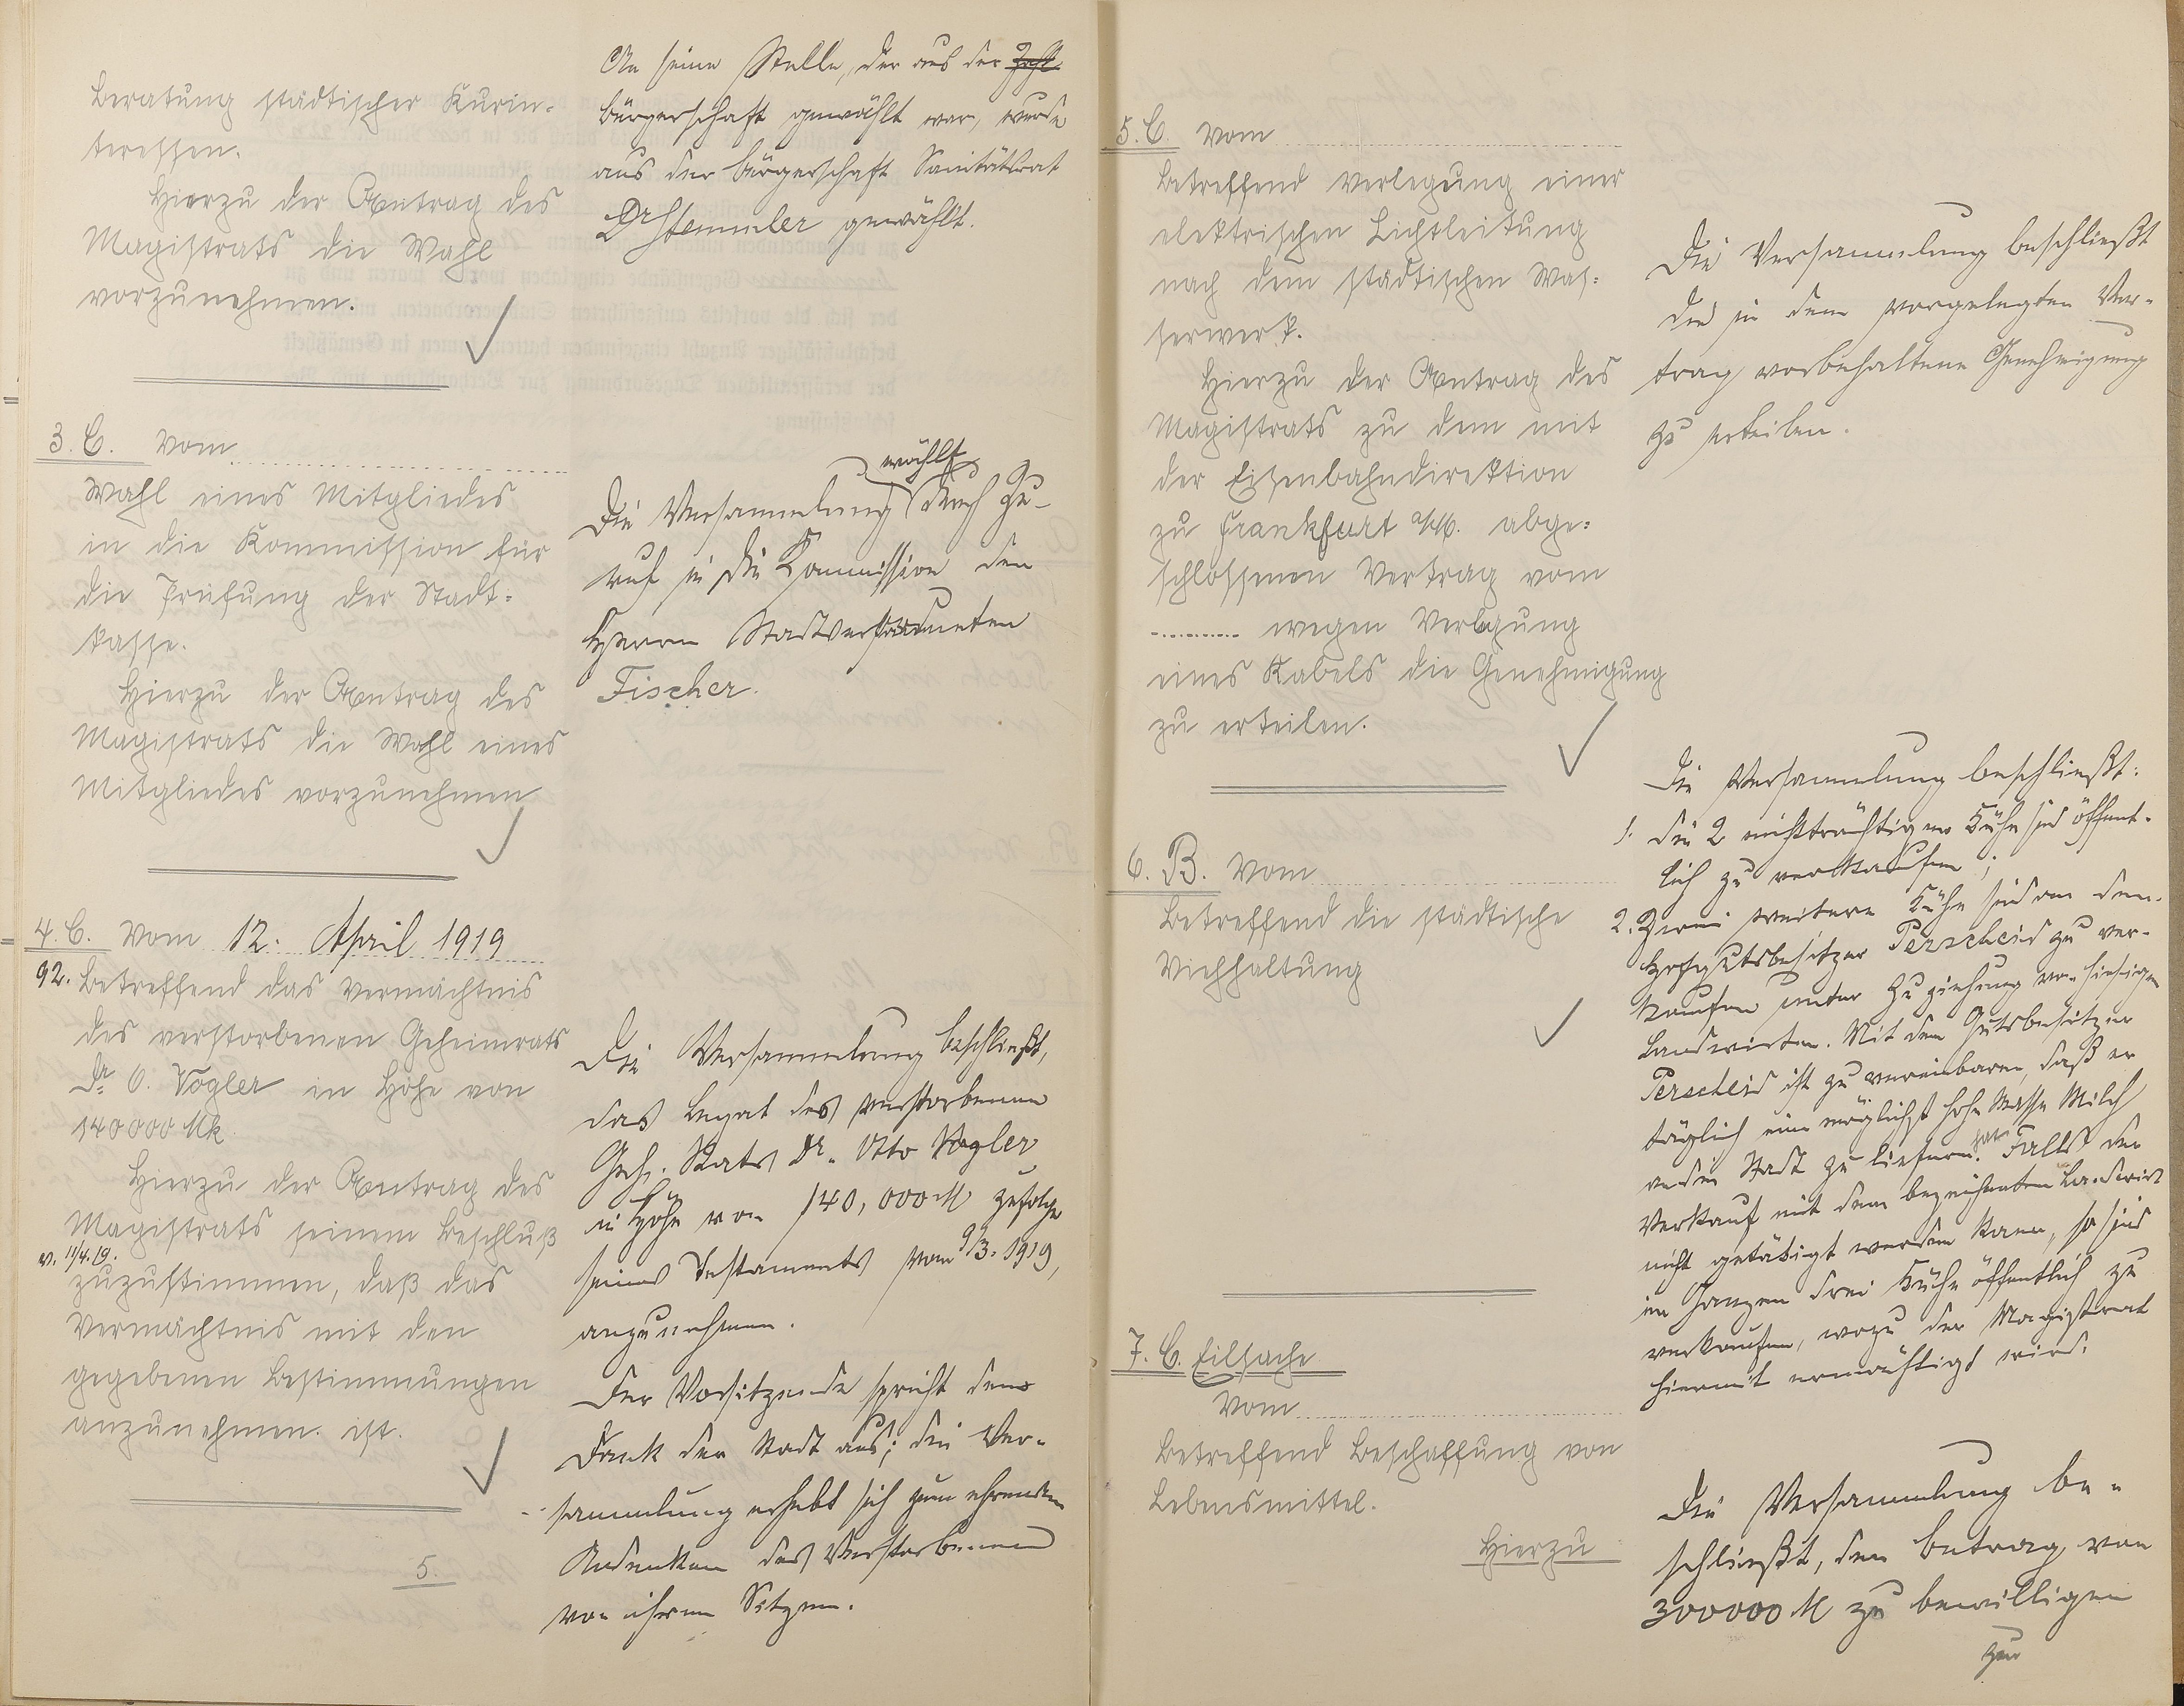 Beratung städtischer Kurin-
teressen.
Hierzu der Antrag des
Magistrats die Wahl
vorzunehmen.
An seine Stelle, der aus der
Bürgerschaft gewählt war, wurde
aus der Bürgerschaft Sanitätsrat
Dr Stemmler gewählt.
3. C. Vom
Wahl eines Mitgliedes
in die Kommission für
die Prüfung der Stadt-
kasse.
Hierzu der Antrag des
Magistrats die Wahl eines
Mitgliedes vorzunehmen
wählt
Die Versammlung durch Zu-
ruf in die Kommission den
Herrn Stadtverordneten
Fischer.
4. C. Vom 12. April 1919
92. Betreffend das Vermächtnis
des verstorbenen Geheimrats
Dr. O. Vogler in Höhe von
140000 Mk.
Hierzu der Antrag des
Magistrats seinem Beschluß
v. 11/4. 19.
zuzustimmen, daß das
Vermächtnis mit den
gegebenen Bestimmungen
anzunehmen ist.
5.
Die Versammlung beschließt,
das Legat des verstorbenen
Geh. Rats Dr. Otto Vogler
in Höhe von 140,000 M zufolge
seines Testaments vom 9/3. 1919,
anzunehmen.
Der Vorsitzende spricht den
Dank der Stadt aus; die Ver-
sammlung erhebt sich zum ehrenden
Andenken des Verstorbenen
von ihren Sitzen.
5. C. Vom
Betreffend Verlegung einer
elektrischen Lichtleitung
nach dem städtischen Was-
serwerk.
Hierzu der Antrag des
Magistrats zu dem mit
der Eisenbahndirektion
zu Frankfurt a/M. abge-
schlossenen Vertrag vom
wegen Verlegung
eines Kabels die Genehmigung
zu erteilen.
Die Versammlung beschließt
die in dem vorgelegten Ver-
trag vorbehaltene Genehmigung
zu erteilen.
6. B. Vom
Betreffend die städtische
Viehhaltung
Die Versammlung beschließt:
1. die 2 nichtträchtigen Kühe sind öffent-
lich zu verkaufen;
2. Zwei weitere Kühe sind an den
Hofgutsbesitzer Perscheid zu ver-
kaufen unter Zuziehung von hiesigen
Landwirten. Mit dem Gutsbesitzer
Perscheid ist zu vereinbaren, daß er
täglich eine möglichst hohe Masse Milch
an die Stadt zu liefern hat. Falls der
Verkauf mit dem bezeichneten Landwirt
nicht getätigt werden kann, so sind
im Ganzen drei Kühe öffentlich zu
verkaufen, wozu der Magistrat
hiermit ermächtigt wird.
7. C. Eilsache
Vom
Betreffend Beschaffung von
Lebensmittel.
Hierzu
Die Versammlung be-
schließt, den Betrag von
300000 M zu bewilligen
zur